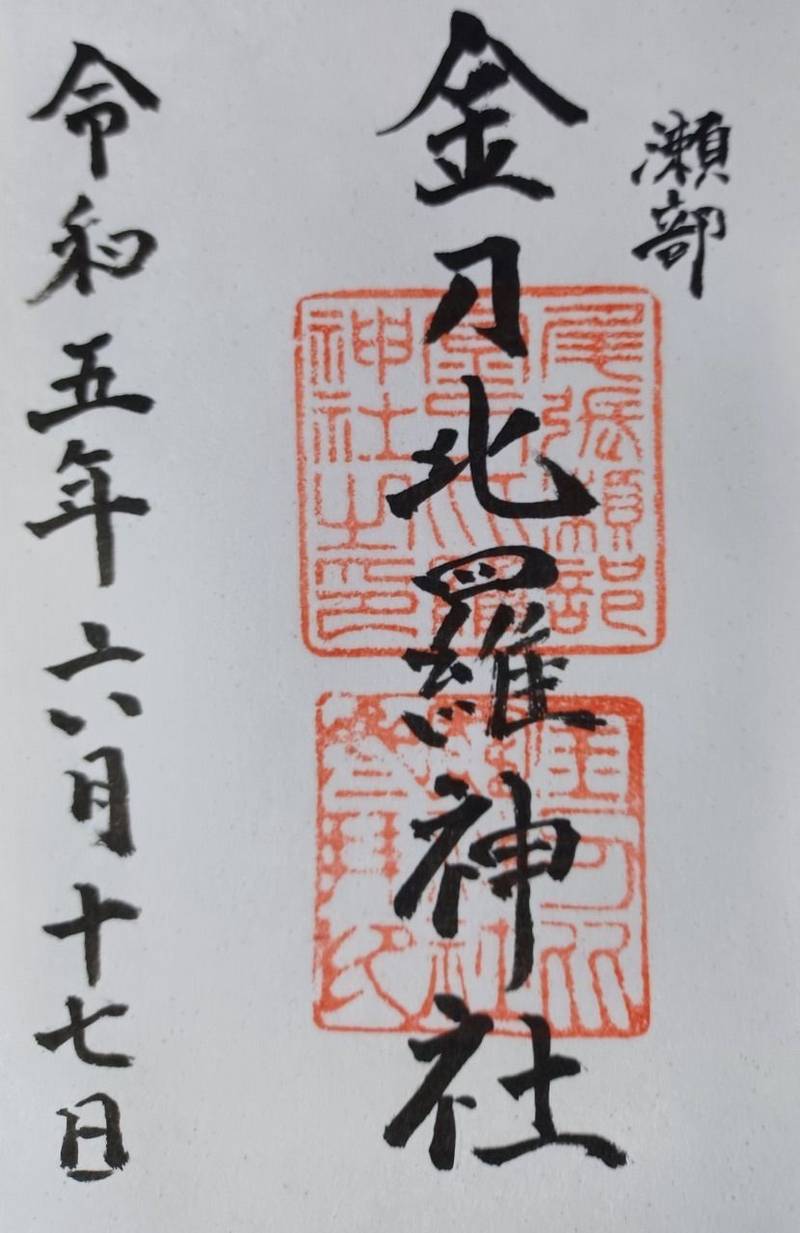 瀬部
金刀比羅神社
尾張瀬部
神社之印
令和五年六月十七日